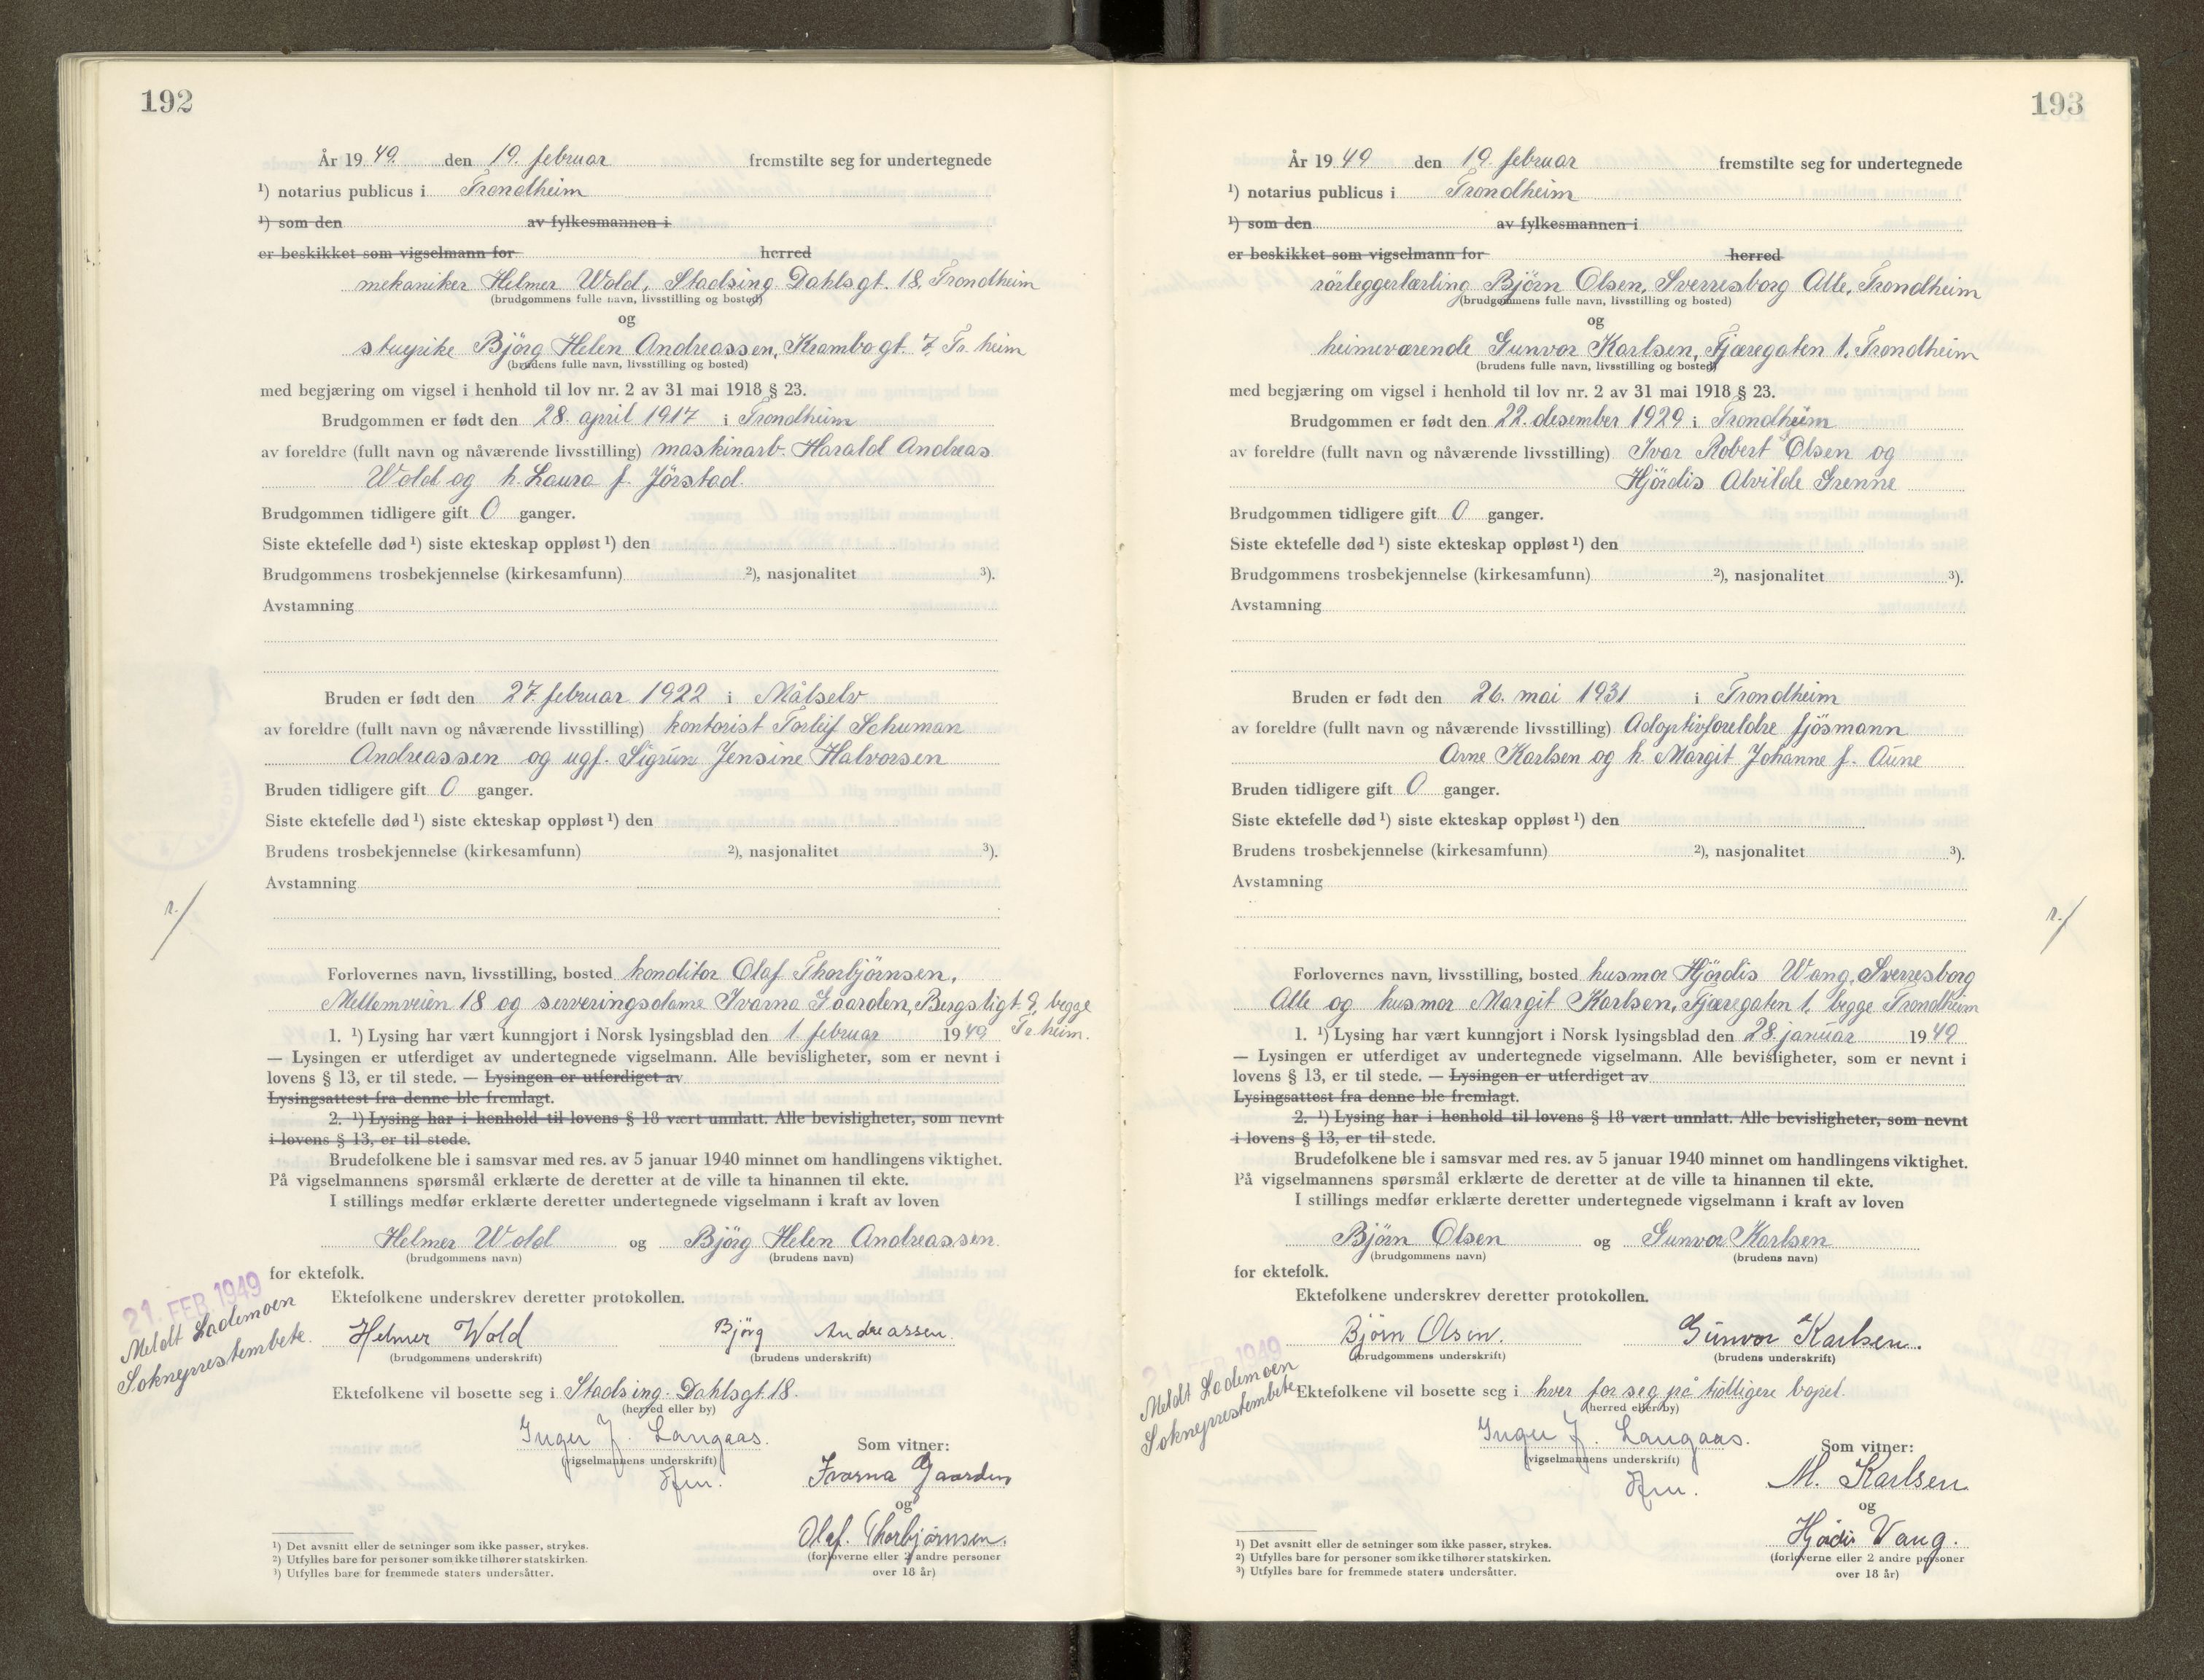 192
År 19 49. den 19. februar fremstilte seg for undertegnede
¹) notarius publicus i Trondheim
¹) som den av fylkesmannen i
er beskikket som vigselmann for herred
mekaniker Helmer Wold, Stadsing. Dahlsgt. 18, Trondheim
(brudgommens fulle navn, livsstilling og bosted)
og
stuepike Bjørg Helen Andreassen, Krambogt. 7, Tr.heim
(brudens fulle navn, livsstilling og bosted)
med begjæring om vigsel i henhold til lov nr. 2 av 31 mai 1918 § 23.
Brudgommen er født den 28. april 1917 i Trondheim
av foreldre (fullt navn og nåværende livsstilling) maskinarb. Harald Andreas
Wold og h. Laura f. Jörstad.
Brudgommen tidligere gift 0 ganger.
Siste ektefelle død ¹) siste ekteskap oppløst ¹) den
Brudgommens trosbekjennelse (kirkesamfunn) ²), nasjonalitet ³).
Avstamning
Bruden er født den 27. februar 1922 i Målselv
av foreldre (fullt navn og nåværende livsstilling) kontorist Torleif Schuman
Andreassen og ugf. Sigrun Jensine Halvorsen
Bruden tidligere gift 0 ganger.
Siste ektefelle død ¹) siste ekteskap oppløst ¹) den
Brudens trosbekjennelse (kirkesamfunn) ²), nasjonalitet ³).
Avstamning
Forlovernes navn, livsstilling, bosted konditor Olaf Thorbjörnsen,
Mellemveien 18 og serveringsdame Ivarna Gaarden, Bergsligt. 9, begge
Tr.heim.
1. ¹) Lysing har vært kunngjort i Norsk lysingsblad den 1. februar 19 49
— Lysingen er utferdiget av undertegnede vigselmann. Alle bevisligheter, som er nevnt i
lovens § 13, er til stede. — Lysingen er utferdiget av
Lysingsattest fra denne ble fremlagt.
2. ¹) Lysing har i henhold til lovens § 18 vært unnlatt. Alle bevisligheter, som nevnt
i lovens § 13, er til stede.
Brudefolkene ble i samsvar med res. av 5 januar 1940 minnet om handlingens viktighet.
På vigselmannens spørsmål erklærte de deretter at de ville ta hinannen til ekte.
I stillings medfør erklærte deretter undertegnede vigselmann i kraft av loven
Helmer Wold og Bjørg Helen Andreassen
(brudgommens navn) (brudens navn)
for ektefolk.
21. FEB. 1949
Meldt Lademoen
Sokneprestembete.
Ektefolkene underskrev deretter protokollen.
Helmer Wold Bjørg Andreassen.
(brudgommens underskrift) (brudens underskrift)
Ektefolkene vil bosette seg i Stadsing. Dahlsgt. 18.
(herred eller by)
Inger J. Langaas.
(vigselmannens underskrift)
Som vitner:
Ivarna Gaarden
og
Olaf. Thorbjørnsen.
(forloverne eller 2 andre personer
over 18 år)
¹) Det avsnitt eller de setninger som ikke passer, strykes.
²) Utfylles bare for personer som ikke tilhører statskirken.
³) Utfylles bare for fremmede staters undersåtter.
193
År 19 49 den 19. februar fremstilte seg for undertegnede
¹) notarius publicus i Trondheim
¹) som den av fylkesmannen i
er beskikket som vigselmann for herred
rörleggerlærling Björn Olsen, Sverresborg Alle, Trondheim
(brudgommens fulle navn, livsstilling og bosted)
og
heimeværende Gunvor Karlsen, Fjæregaten 1, Trondheim
(brudens fulle navn, livsstilling og bosted)
med begjæring om vigsel i henhold til lov nr. 2 av 31 mai 1918 § 23.
Brudgommen er født den 22. desember 1929 i Trondheim
av foreldre (fullt navn og nåværende livsstilling) Ivar Robert Olsen og
Hjördis Alvilde Grenne
Brudgommen tidligere gift 0 ganger.
Siste ektefelle død ¹) siste ekteskap oppløst ¹) den
Brudgommens trosbekjennelse (kirkesamfunn) ²), nasjonalitet ³).
Avstamning
Bruden er født den 26. mai 1931 i Trondheim
av foreldre (fullt navn og nåværende livsstilling) Adoptivforeldre fjösmann
Arne Karlsen og h. Margit Johanne f. Aune
Bruden tidligere gift 0 ganger.
Siste ektefelle død ¹) siste ekteskap oppløst ¹) den
Brudens trosbekjennelse (kirkesamfunn) ²), nasjonalitet ³).
Avstamning
Forlovernes navn, livsstilling, bosted husmor Hjördis Wang, Sverresborg
Alle og husmor Margit Karlsen, Fjæregaten 1, begge Trondheim
1. ¹) Lysing har vært kunngjort i Norsk lysingsblad den 28. januar 19 49
— Lysingen er utferdiget av undertegnede vigselmann. Alle bevisligheter, som er nevnt i
lovens § 13, er til stede. — Lysingen er utferdiget av
Lysingsattest fra denne ble fremlagt.
2. ¹) Lysing har i henhold til lovens § 18 vært unnlatt. Alle bevisligheter, som nevnt
i lovens § 13, er til stede.
Brudefolkene ble i samsvar med res. av 5 januar 1940 minnet om handlingens viktighet.
På vigselmannens spørsmål erklærte de deretter at de ville ta hinannen til ekte.
I stillings medfør erklærte deretter undertegnede vigselmann i kraft av loven
Björn Olsen og Gunvor Karlsen
(brudgommens navn) (brudens navn)
for ektefolk.
Ektefolkene underskrev deretter protokollen.
Bjørn Olsen. Gunvor Karlsen.
(brudgommens underskrift) (brudens underskrift)
21. FEB. 1949
Meldt Lademoen
Sokneprestembete
Ektefolkene vil bosette seg i hver for seg på tidligere bopel.
(herred eller by)
Inger J. Langaas.
(vigselmannens underskrift)
Som vitner:
M. Karlsen
og
Hjødis Vang.
(forloverne eller 2 andre personer
over 18 år)
¹) Det avsnitt eller de setninger som ikke passer, strykes.
²) Utfylles bare for personer som ikke tilhører statskirken.
³) Utfylles bare for fremmede staters undersåtter.